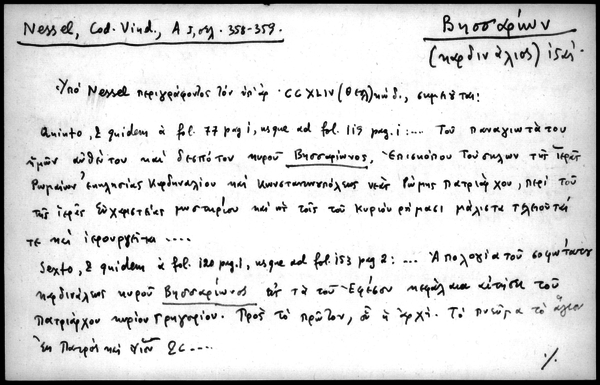 Nessel, Cod. Vind., A 5, σελ. 358-359.
Βησσαρίων
(καρδινάλιος) ἰδιαί.
Ὑπὸ Nessel περιγράφοντος τὸν ὑπ' ἀρ. CCXLIV (θεολ) κώδ., σημειοῦται:
Quinto, & quidem à fol. 77 pag 1, usque ad fol. 119 pag. 1: ... Τοῦ παναγιωτάτου
ἡμῶν αὐθέντου καὶ δεσπότου κυροῦ Βησσαρίωνος, Ἐπισκόπου Τούσκλων τῆς ἱερᾶς
Ρωμαίων Ἐκκλησίας Καρδηναλίου καὶ Κωνσταντινουπόλεως νέας Ρώμης Πατριάρχου, περὶ τοῦ
τῆς ἱερᾶς Εὐχαριστίας μυστηρίου καὶ ὅτι τοῖς τοῦ Κυρίου ῥήμασι μάλιστα τελειοῦται
τε καὶ ἱερουργεῖται ....
Sexto, & quidem à fol. 120 pag. 1, usque ad fol. 153 pag 2: ... Ἀπολογία τοῦ σοφωτάτου
καρδινάλεως κυροῦ Βησσαρίωνος εἰς τὰ τοῦ Ἐφέσου κεφάλαια αἰτήσει τοῦ
Πατριάρχου κυρίου Γρηγορίου. Πρὸς τὸ πρῶτον, οὗ ἡ ἀρχή. Τὸ πνεῦμα τὸ ἅγιον
ἐκ Πατρὸς καὶ υἱοῦ &c ....
./.